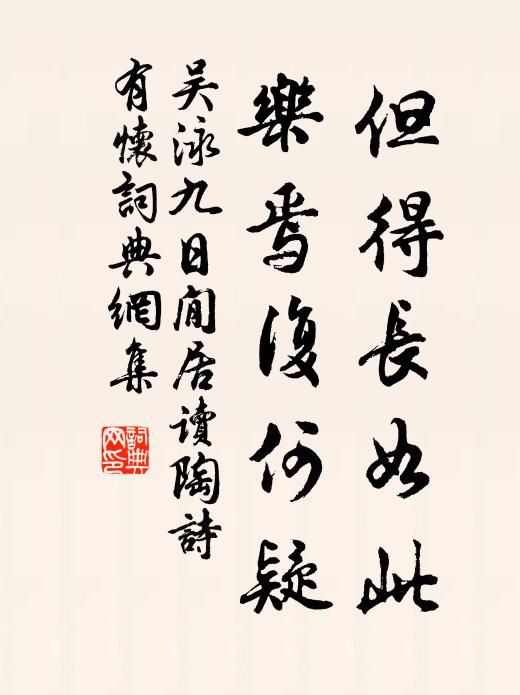 但得長如此
樂焉復何疑
吴泳九日閒居讀陶詩
有懷詞典網集
詞典
网印